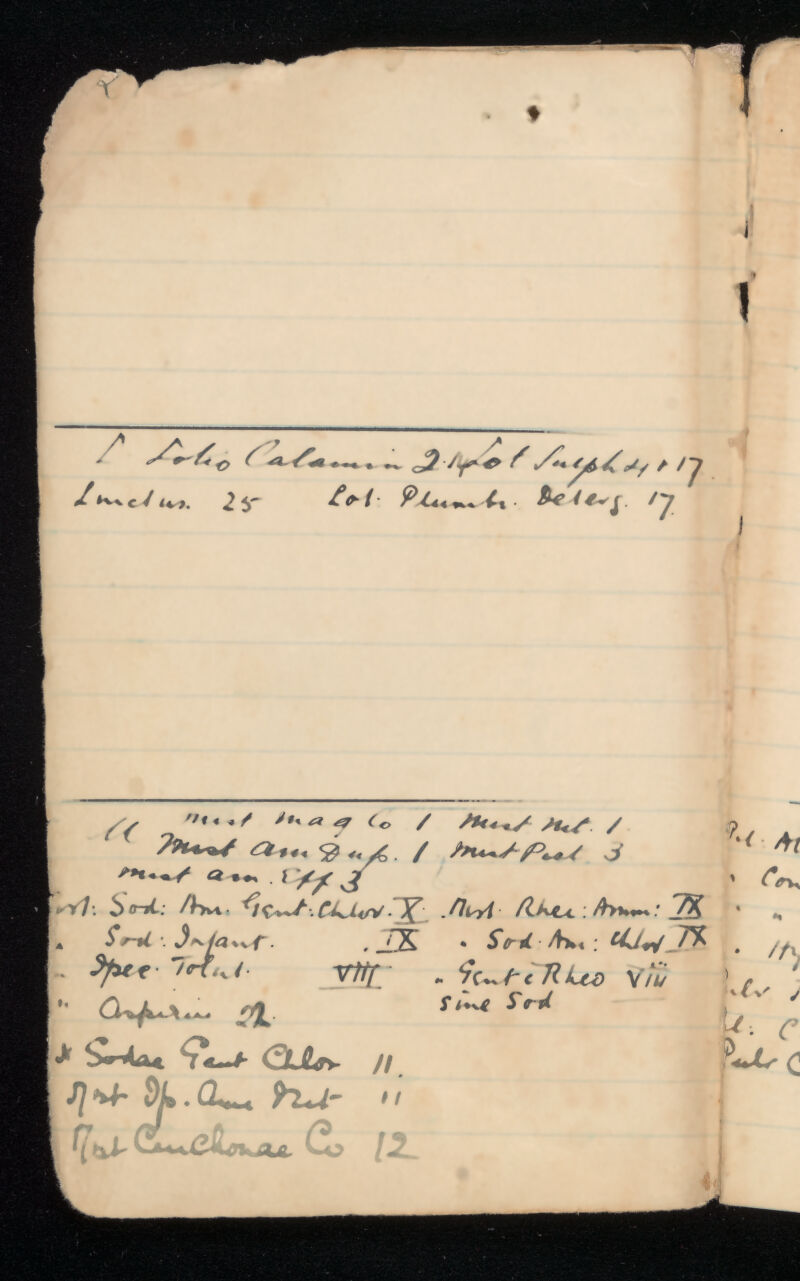 L Lotio Calamin 2. Lot Sulph 4, 17
Linctus. 25 Lot: Plumbi. Deterg. 17
M Mist Mag Co 1 Mist Nit. 1
Mist Am Dup. 1 Mist Pect 3
Mist am. Eff 3
Mist: Sod: Am. Gent: Chlor. X. Mist Rhei: Amm: IX
" Sod: Infant. . IX " Sod Am: Chlor IX
" Ipec. Tolut. VIII " Gent c Rheo VIII
sine Sod
" Aspirin 22.
Sodae Gent Chlor 11.
Mist Ip. Am Nit 11
Mist Cinchonae Co 12
Pil Al
" Con
" "
" Hy
Pulv C